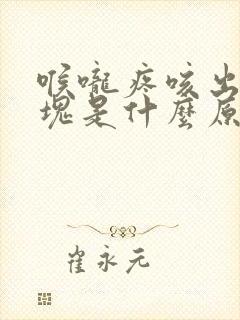 喉嚨疼咳出
塊是什麼原
崔永元